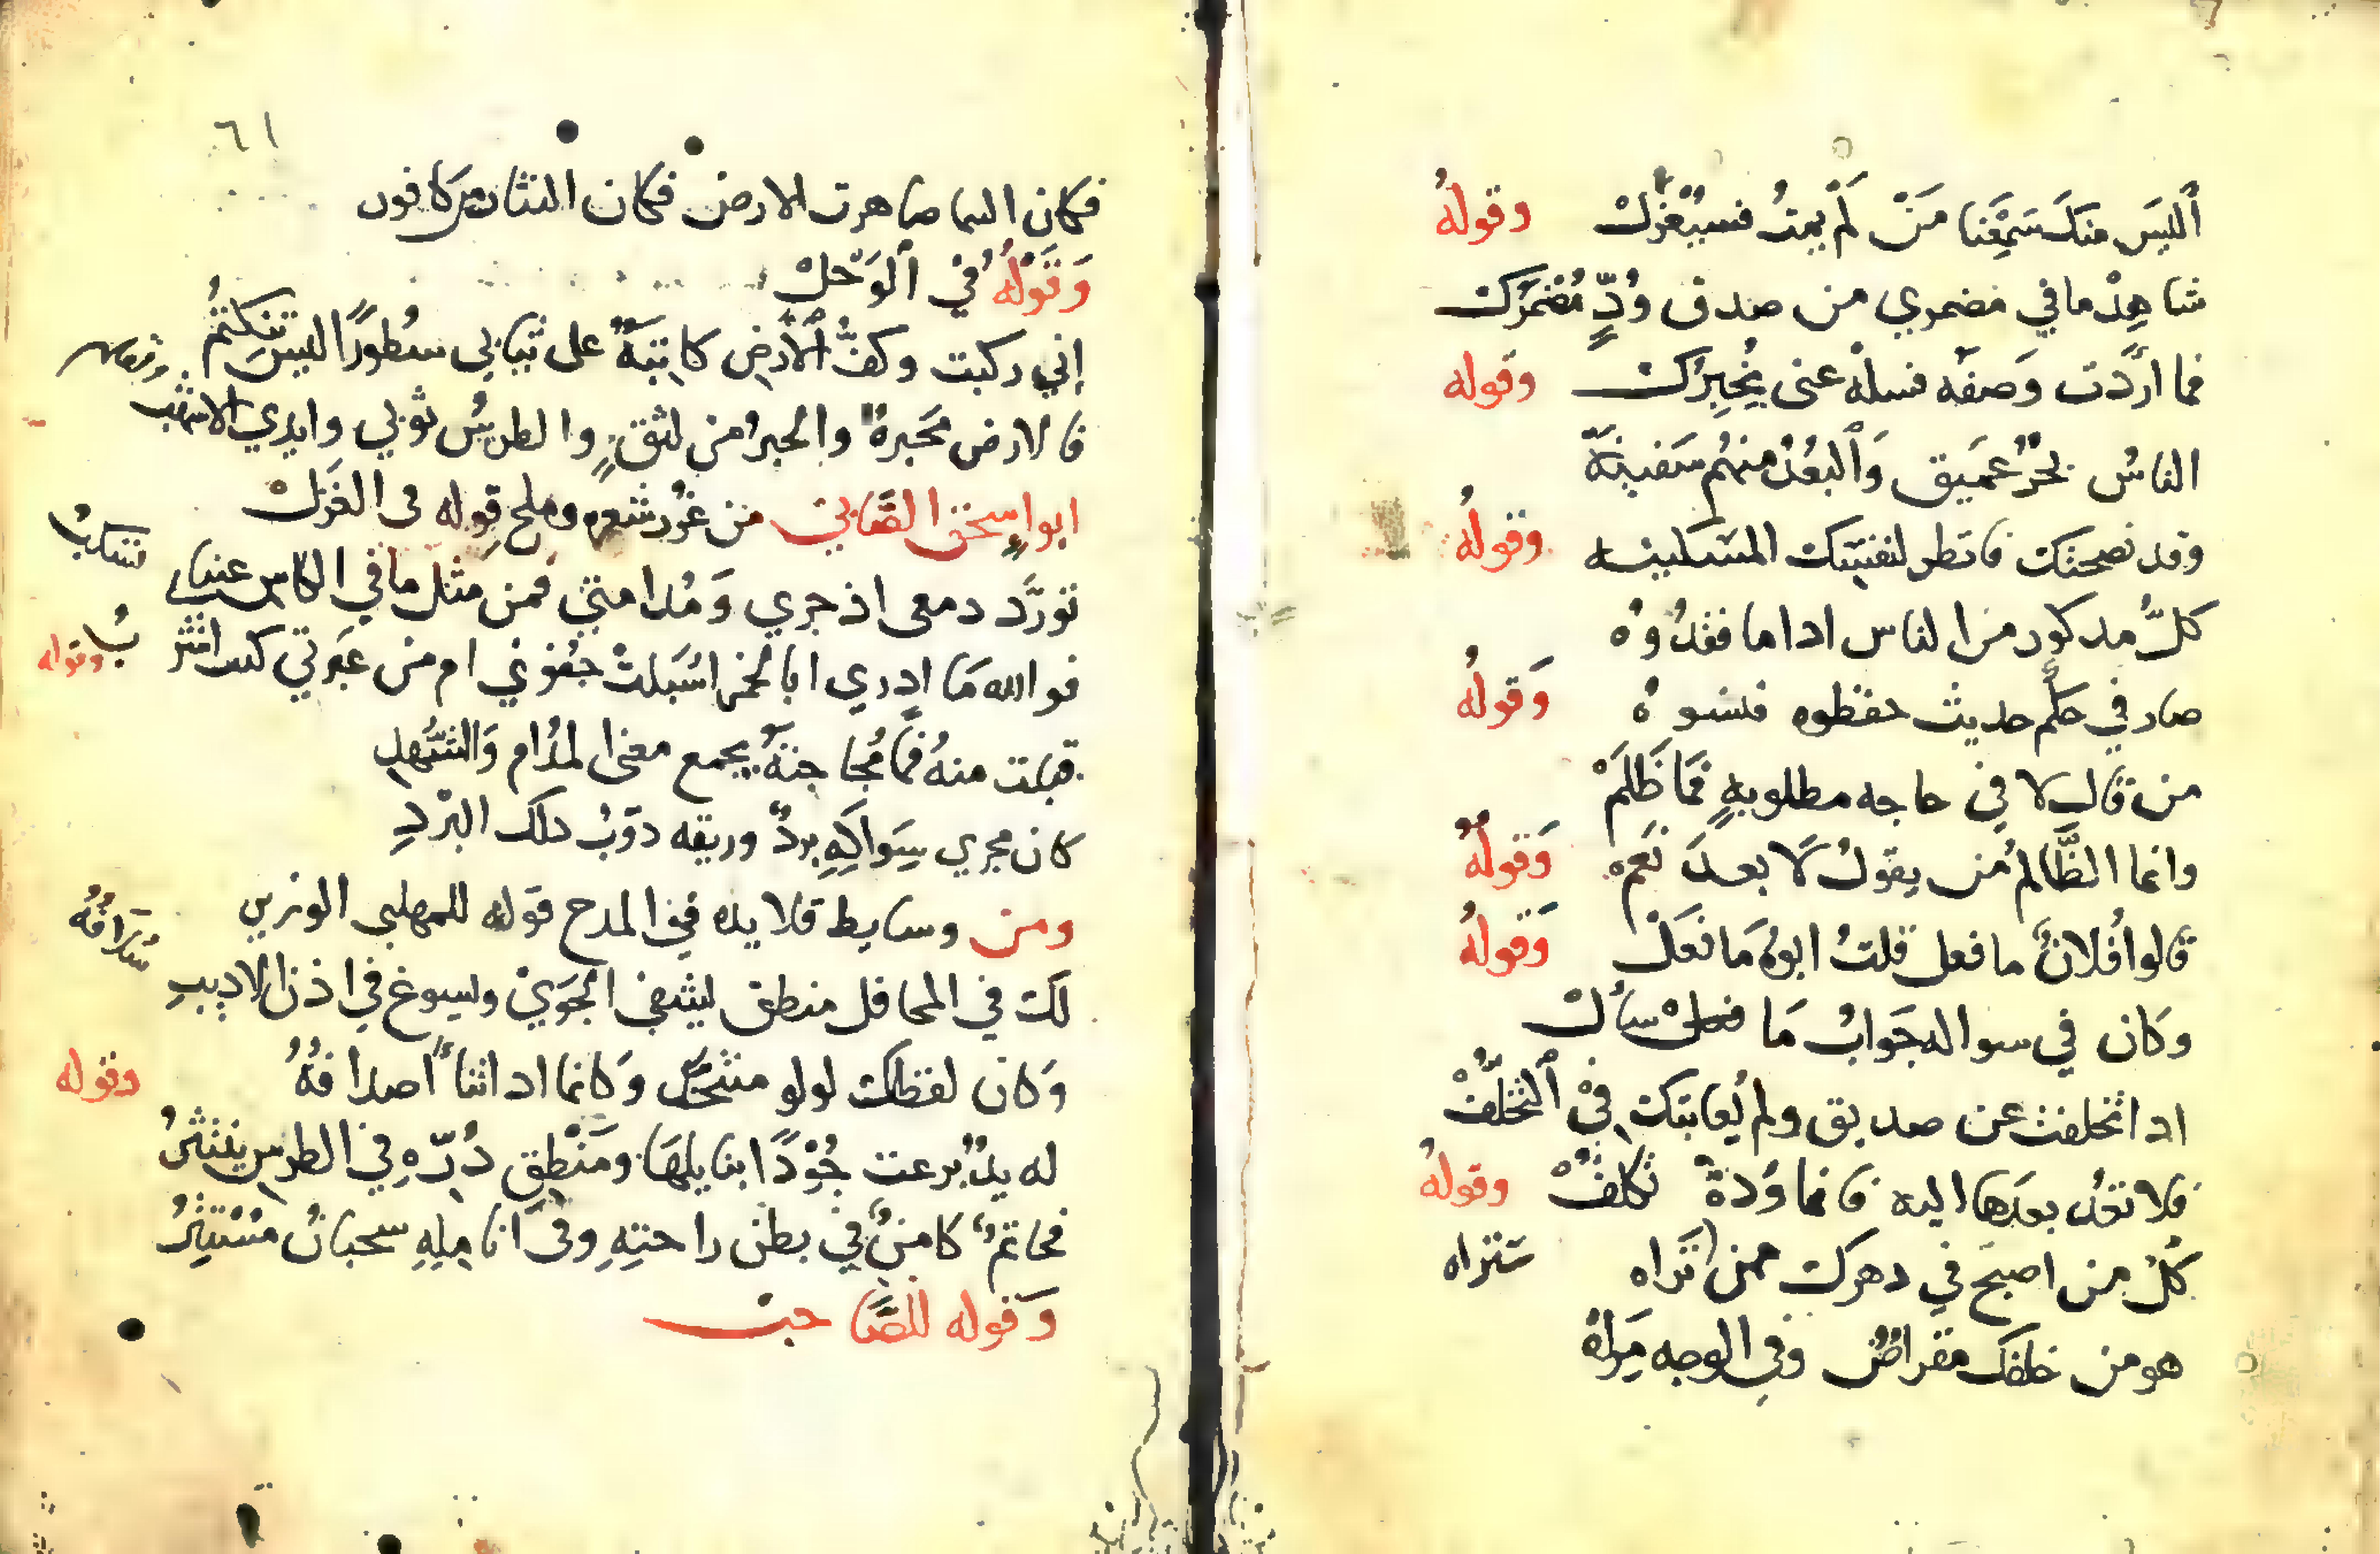 أليس منك سَمِعْنا مَنْ لَمْ يمتْ فسيُعْزَلْ وقولهُ
شاهِدْ ما في مضمري من صدق وُدٍّ مُضْمَرَكْ
فما أرَدْت وَصفهُ فسلهُ عنى يُخْبِرَكْ وقوله
الناسُ بحْرٌ عميق وَالبعْدُ منهُم سَفينهْ
وقد نصحتك فانظر لنفسك المسكينه وقولهُ
كلُّ مدكور من الناس ادا ما فقدُوهُ
صار في حكم حديث حفظوه فنسوهُ وَقولهُ
من قال لا في حاجه مطلوبهٍ فمَا ظَلَمْ
وانما الظَّالمُ من يقولُ لَا بعدَ نَعَمْ وَقولهُ
قالوا فُلانٌ ما فعل قلتُ ابوهُ مَا فعَلْ وَقولهُ
وَكان في سواله جَوابُ مَا سألْ
ادا تخلفت عن صديق ولم يُعاتبك في التخلّفْ
فلا تعُد بعدَها اليه فانما وُدهُ تكلفْ وقولهُ
كلّ من اصبحَ في دهرك ممن تَراه سَتراه
هو من خلفكَ مقراضٌ وفي الوجه مِرَاهْ
٦١
فكان السما صاهرت الارض فكان النثار من كافور
وَقَوْلهُ في الوَحْلْ
إني ركبت وكفُّ الأرْضِ كاتبَةٌ على ثيابي سُطورًا ليسَ تنكتمُ
فالارض محَبرةٌ والحبرُ من لثقٍ والطرسُ ثوبي وايدي الاشهب
ابو إسحق الصَّابئ من غُرر شعره وملح قوله في الغَزَلْ
تورَّد دمعى اذ جري وَمُدامتي فمن مثل ما في الكاس عيناي تسكبُ
فوالله مَا ادري ابالخمر اسْبَلتْ جفوني ام من عبرتي كنت اشربُ وقوله
قبلت منهُ فمًا مُجاجتهُ يجمع معنى المدُام وَالشّهدِ
كان مجري سِوَاكهِ بردٌ وريقه ذوْبُ ذلك البرْدِ
ومن وسايط قلايده في المدح قوله للمهلبي الوزير
لكَ في المحافل منطق يشفي الجَوَي ويسوغ في اذن الاديبِ سُلافُهُ
وَكان لفظك لولو متنخّل وَكانما اداننا أصدافهُ وقوله
له يدٌ برعت جُوْدًا بنايلهَا ومَنْطِق دُرّه في الطرس ينتثرُ
فحاتمٌ كامنٌ في بطن راحتِهِ وفي انامِلِهِ سحبانُ مُسْتتِرُ
وَقوله للصَّاحب